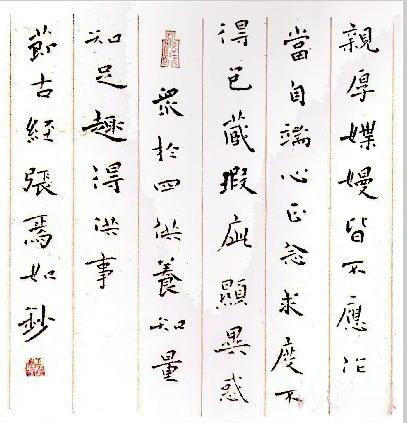 親厚媟嫚皆不應作
當自端心正念求度不
得包藏瑕疵顯異惑
眾於四供養知量
知足趣得供事
節古經張焉如鈔